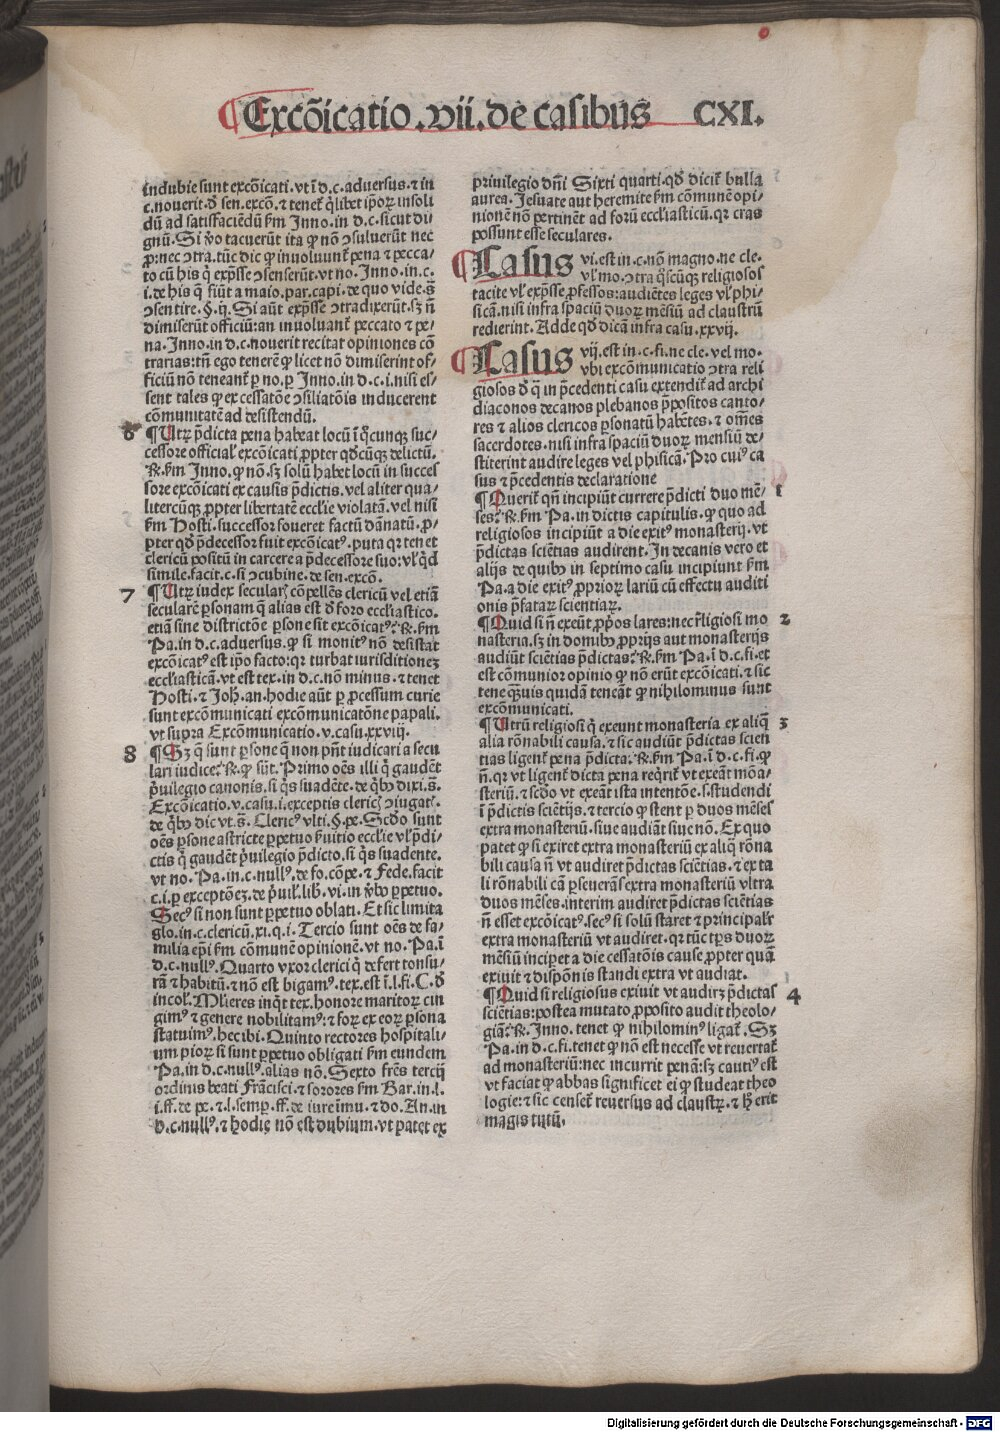 Excõicatio .vii. de casibus CXI.
indubie sunt excõicati. vt ī d. c. aduersus. ⁊ in
c. nouerit. đ sen. excõ. ⁊ tenet᷑ q̄libet ip̄oꝝ insoli
dū ad satisfaciēdū ẜm Inno. in d. c. sicut di
gnū. Si v̄o tacuerūt ita ꝙ nō ꝯsuluerūt nec
ꝓ: nec ꝯtra. tūc dic ꝙ inuoluunt᷑ pena ⁊ pecca-
to cū his q̄ exp̄sse ꝯsenserūt. vt no. Inno. in. c.
i. de his q̄ fiūt a maio. par. capi. de quo vide. s̄.
ꝯsentire. §. ij. Si aūt exp̄sse ꝯtradixerūt. sꝫ n̄
dimiserūt officiū: an inuoluant᷑ peccato ⁊ pe-
na. Inno. in d. c. nouerit recitat opiniones cō
trarias: tn̄ ego tenerē ꝙ licet nō dimiserint of-
ficiū nō teneant᷑ ꝑ no. ꝑ Inno. in d. c. i. nisi es-
sent tales ꝙ ex cessatōe ꝯsiliatōis inducerent
cōmunitatē ad desistendū.
6 ¶ Utꝝ p̄dicta pena habeat locū ī q̄cunqꝫ suc-
cessore official᷑ excōicati ꝓpter qđcūqꝫ delictū.
℟. ẜm Inno. ꝙ nō. sꝫ solū habet locū in succes
sore excōicati ex causis p̄dictis. vel aliter qua-
litercūqꝫ ꝓpter libertatē ecclīe violatā. vel nisi
ẜm Hosti. successor foueret factū dānatū. ꝓ-
pter qđ p̄decessor fuit excōicatꝰ. puta qꝛ tenet
clericū positū in carcere a p̄decessore suo: vl᷑ q̄d
simile. facit. c. si ꝯcubine. de sen. excō.
7 ¶ Utꝝ iudex seculařꝭ cōpellēs clericū vel etiā
secularē ꝑsonam q̄ alias est đ foro ecclīastico.
etiā sine districtōe ꝑsone sit excōicatꝰ? ℟. ẜm
Pa. in d. c. aduersus. ꝙ si monitꝰ nō desistat
excōicatꝰ est ip̄o facto: qꝛ turbat iurisditionez
ecclīasticā. vt est tex. in d. c. nō minus. ⁊ tenet
Hosti. ⁊ Joh̄. an. hodie aūt ꝑ ꝓcessum curie
sunt excōmunicati excōmunicatōne papali.
vt supra Excōmunicatio. v. casu. xxviij.
8 ¶ Sꝫ q̄ sunt ꝑsone q̄ non pn̄t iudicari a secu
lari iudice? ℟. ꝙ sūt. Primo oēs illi q̄ gaudēt
p̄uilegio canonis. si q̄s suadēte. de q̄bꝰ dixi. s̄.
Excōicatio. v. casu. i. exceptis clericꝭ ꝯiugatꝭ.
de q̄bꝰ dic vt. s̄. Clericꝰ vlti. §. pe. Scđo sunt
oēs ꝑsone astricte ꝑpetuo ẜuitio ecclīe vl᷑ p̄di-
ctis q̄ gaudēt p̄uilegio p̄dicto. si q̄s suadente.
vt no. Pa. in. c. nullꝰ. de fo. cōpe. ⁊ Fede. facit
c. i. ꝑ exceptōeꝫ. de p̄uil᷑. lib. vi. in v̄bo ꝑpetuo.
Secꝰ si non sunt ꝑpetuo oblati. Et sic limita
glo. in. c. clericū. xi. q. i. Tercio sunt oēs de fa-
milia ep̄i ẜm cōmunē opinionē. vt no. Pa. ī
d. c. nullꝰ. Quarto vxor clerici q̄ defert tonsu-
rā ⁊ habitū. ⁊ nō est bigamꝰ. tex. est ī. l. fi. C. đ
incol᷑. Mlieres inq̄t tex. honore maritoꝝ eri
gimꝰ ⁊ genere nobilitamꝰ: ⁊ foꝝ ex eoꝝ ꝑsona
statuimꝰ. hec ibi. Quinto rectores hospitali-
um pioꝝ si sunt ꝑpetuo obligati ẜm eundem
Pa. in d. c. nullꝰ. alias nō. Sexto frēs tercij
ordinis beati Frācisci. ⁊ sorores ẜm Bar. in. l.
i. ff. de pe. ⁊. l. semꝑ. ff. de iure īmu. ⁊ do. An. in
d. c. nullꝰ. ⁊ hodie nō est dubium. vt patet ex
priuilegio dn̄i Sixti quarti. qđ dicit᷑ bulla
aurea. Jesuate aut heremite ẜm cōmunē opi-
nionē nō pertinēt ad forū ecclīasticū. qꝛ cras
possunt esse seculares.
¶ Casus vi. est in. c. nō magno. ne cle.
vl᷑ mo. ꝯtra q̄scūqꝫ religiosos
tacite vl᷑ exp̄sse ꝓfessos: audiētes leges vl᷑ phi-
sicā. nisi infra spaciū duoꝝ mēsiū ad claustrū
redierint. Adde qđ dicā infra casu. xxvij.
¶ Casus vij. est in. c. fi. ne cle. vel mo.
vbi excōmunicatio ꝯtra reli
giosos đ q̄ in p̄cedenti casu extendit᷑ ad archi
diaconos decanos plebanos p̄positos canto-
res ⁊ alios clericos ꝑsonatū habētes. ⁊ om̄es
sacerdotes. nisi infra spaciū duoꝝ mensiū de-
stiterint audire leges vel phisicā. Pro cuiꝰ ca
sus ⁊ p̄cedentis declaratione
¶ Querit᷑ qn̄ incipiūt currere p̄dicti duo mē- 1
ses? ℟. ẜm Pa. in dictis capitulis. ꝙ quo ad
religiosos incipiūt a die exitꝰ monasterij. vt
p̄dictas sciētias audirent. In decanis vero et
alijs de quibꝰ in septimo casu incipiunt ẜm
Pa. a die exitꝰ ꝓprioꝝ lariū cū effectu auditi
onis p̄fataꝝ scientiaꝝ.
¶ Quid si n̄ exeūt ꝓp̄os lares: nec r̄ligiosi mo 2
nasteria. sꝫ in domibꝰ ꝓprijs aut monasterijs
audiūt sciētias p̄dictas? ℟. ẜm Pa. ī d. c. fi. et
est cōmunior opinio ꝙ nō erūt excōicati. ⁊ sic
tene qꝫuis quidā teneāt ꝙ nihilominus sunt
excōmunicati.
¶ Utrū religiosi q̄ exeunt monasteria ex aliq̄ 3
alia rōnabili causa. ⁊ sic audiūt p̄dictas scien
tias ligent᷑ pena p̄dicta? ℟. ẜm Pa. ī d. c. fi. ꝙ
n̄. qꝛ vt ligent᷑ dicta pena reqrit᷑ vt exeāt mōa-
steriū. ⁊ scđo vt exeāt ista intentōe. s. studendi
ī p̄dictis sciētijs. ⁊ tercio ꝙ stent ꝑ duos mēses
extra monasteriū. siue audiāt siue nō. Ex quo
patet ꝙ si exiret extra monasteriū ex aliq̄ rōna
bili causa n̄ vt audiret p̄dictas sciētias. ⁊ ex ta
li rōnabili cā ꝑseuerās extra monasteriū vltra
duos mēses. interim audiret p̄dictas sciētias
n̄ esset excōicatꝰ. secꝰ si solū staret ⁊ principalr̄
extra monasteriū vt audiret. qꝛ tūc tp̄s duoꝝ
mēsiū incipet a die cessatōis cause ꝓpter quā
exiuit ⁊ dispōnis standi extra vt audiat.
¶ Quid si religiosus exiuit vt audirꝫ p̄dictas 4
sciētias: postea mutato ꝓposito audit theolo-
giā? ℟. Inno. tenet ꝙ nihilominꝰ ligat᷑. Sꝫ
Pa. in d. c. fi. tenet ꝙ nō est necesse vt reuertat᷑
ad monasteriū: nec incurrit penā: sꝫ cautiꝰ est
vt faciat ꝙ abbas significet ei ꝙ studeat theo
logie: ⁊ sic censet᷑ reuersus ad claustꝝ. ⁊ h̄ erit
magis tutū.
Digitalisierung gefördert durch die Deutsche Forschungsgemeinschaft - DFG